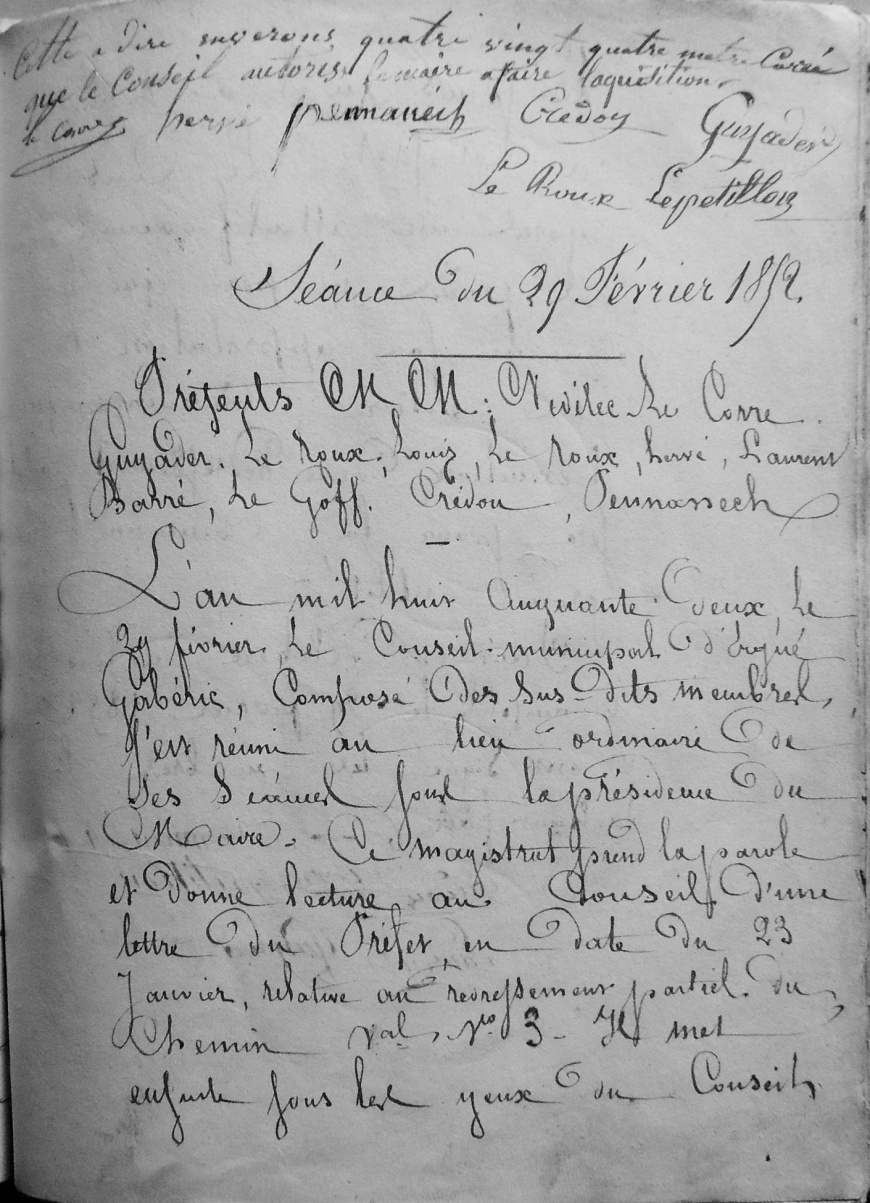 Cette a dire enverons quatre vingt quatre metre Carré
que le Conseil autorise le maire a faire laquisition
le Corre hervé pennanéch Crédou Guyader
Le Roux Lepetillon
Séance du 29 Février 1852.
Présents MM: Nédélec Le Corre
Guyader. Le Roux, Louis, Le Roux, hervé, Laurent
Barré, Le Goff. Crédou, Pennanech
L'an mil huit Cinquante deux, le
29 février. Le Conseil municipal d'Ergué
Gabéric, Composé des sus-dits membres,
s'est réuni au lieu ordinaire de
ses séances sous la présidence du
Maire. Ce magistrat prend la parole
et donne lecture au Conseil d'une
lettre du Préfet, en date du 23
Janvier, relative au redressement partiel du
Chemin val. No 3 - Il met
ensuite sous les yeux du Conseil,